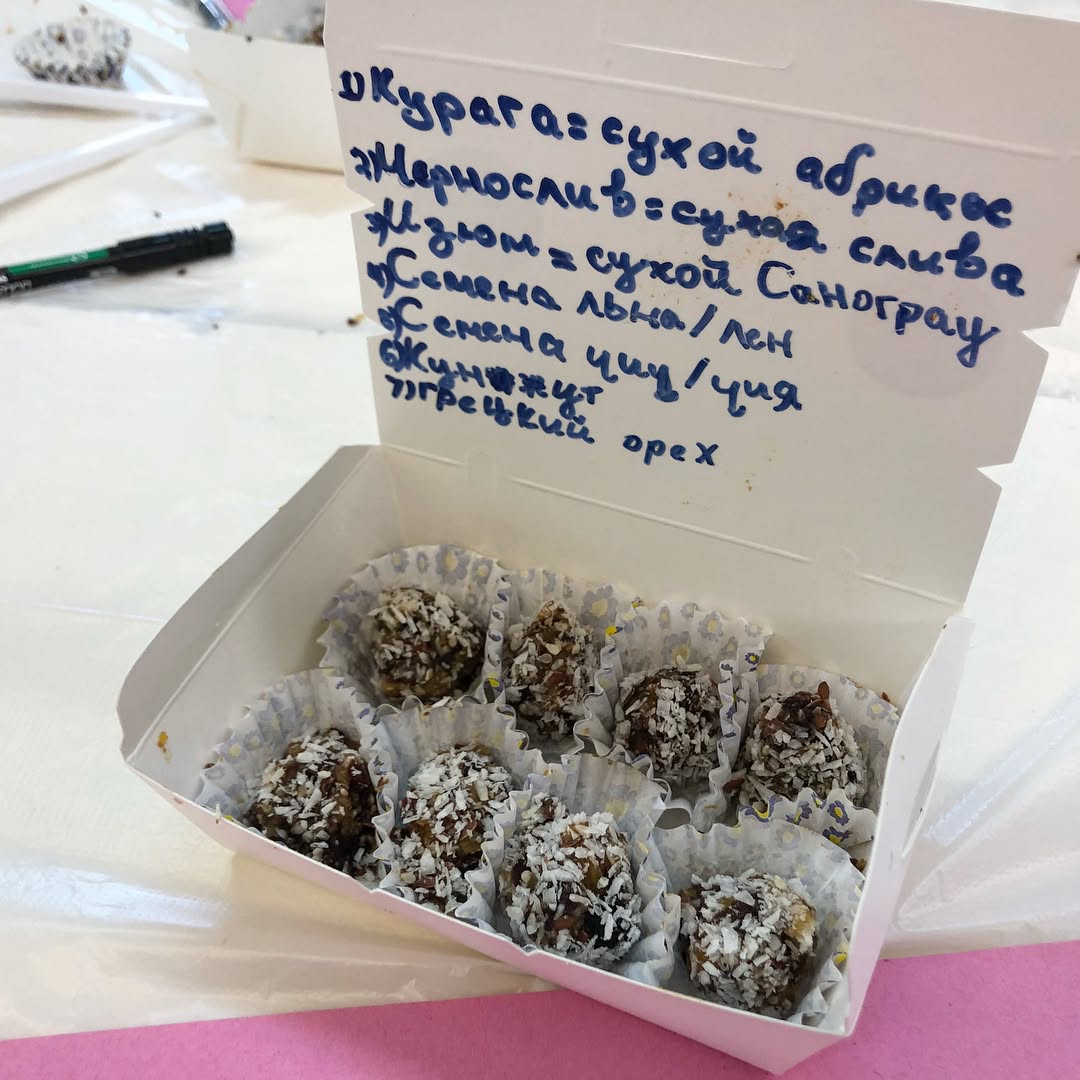 1) Курага = сухой абрикос
2) Чернослив = сухая слива
3) Изюм = сухой Санограу
4) Семена льна / лен
5) Семена чиц / чия
6) Кунжут
7) грецкий орех